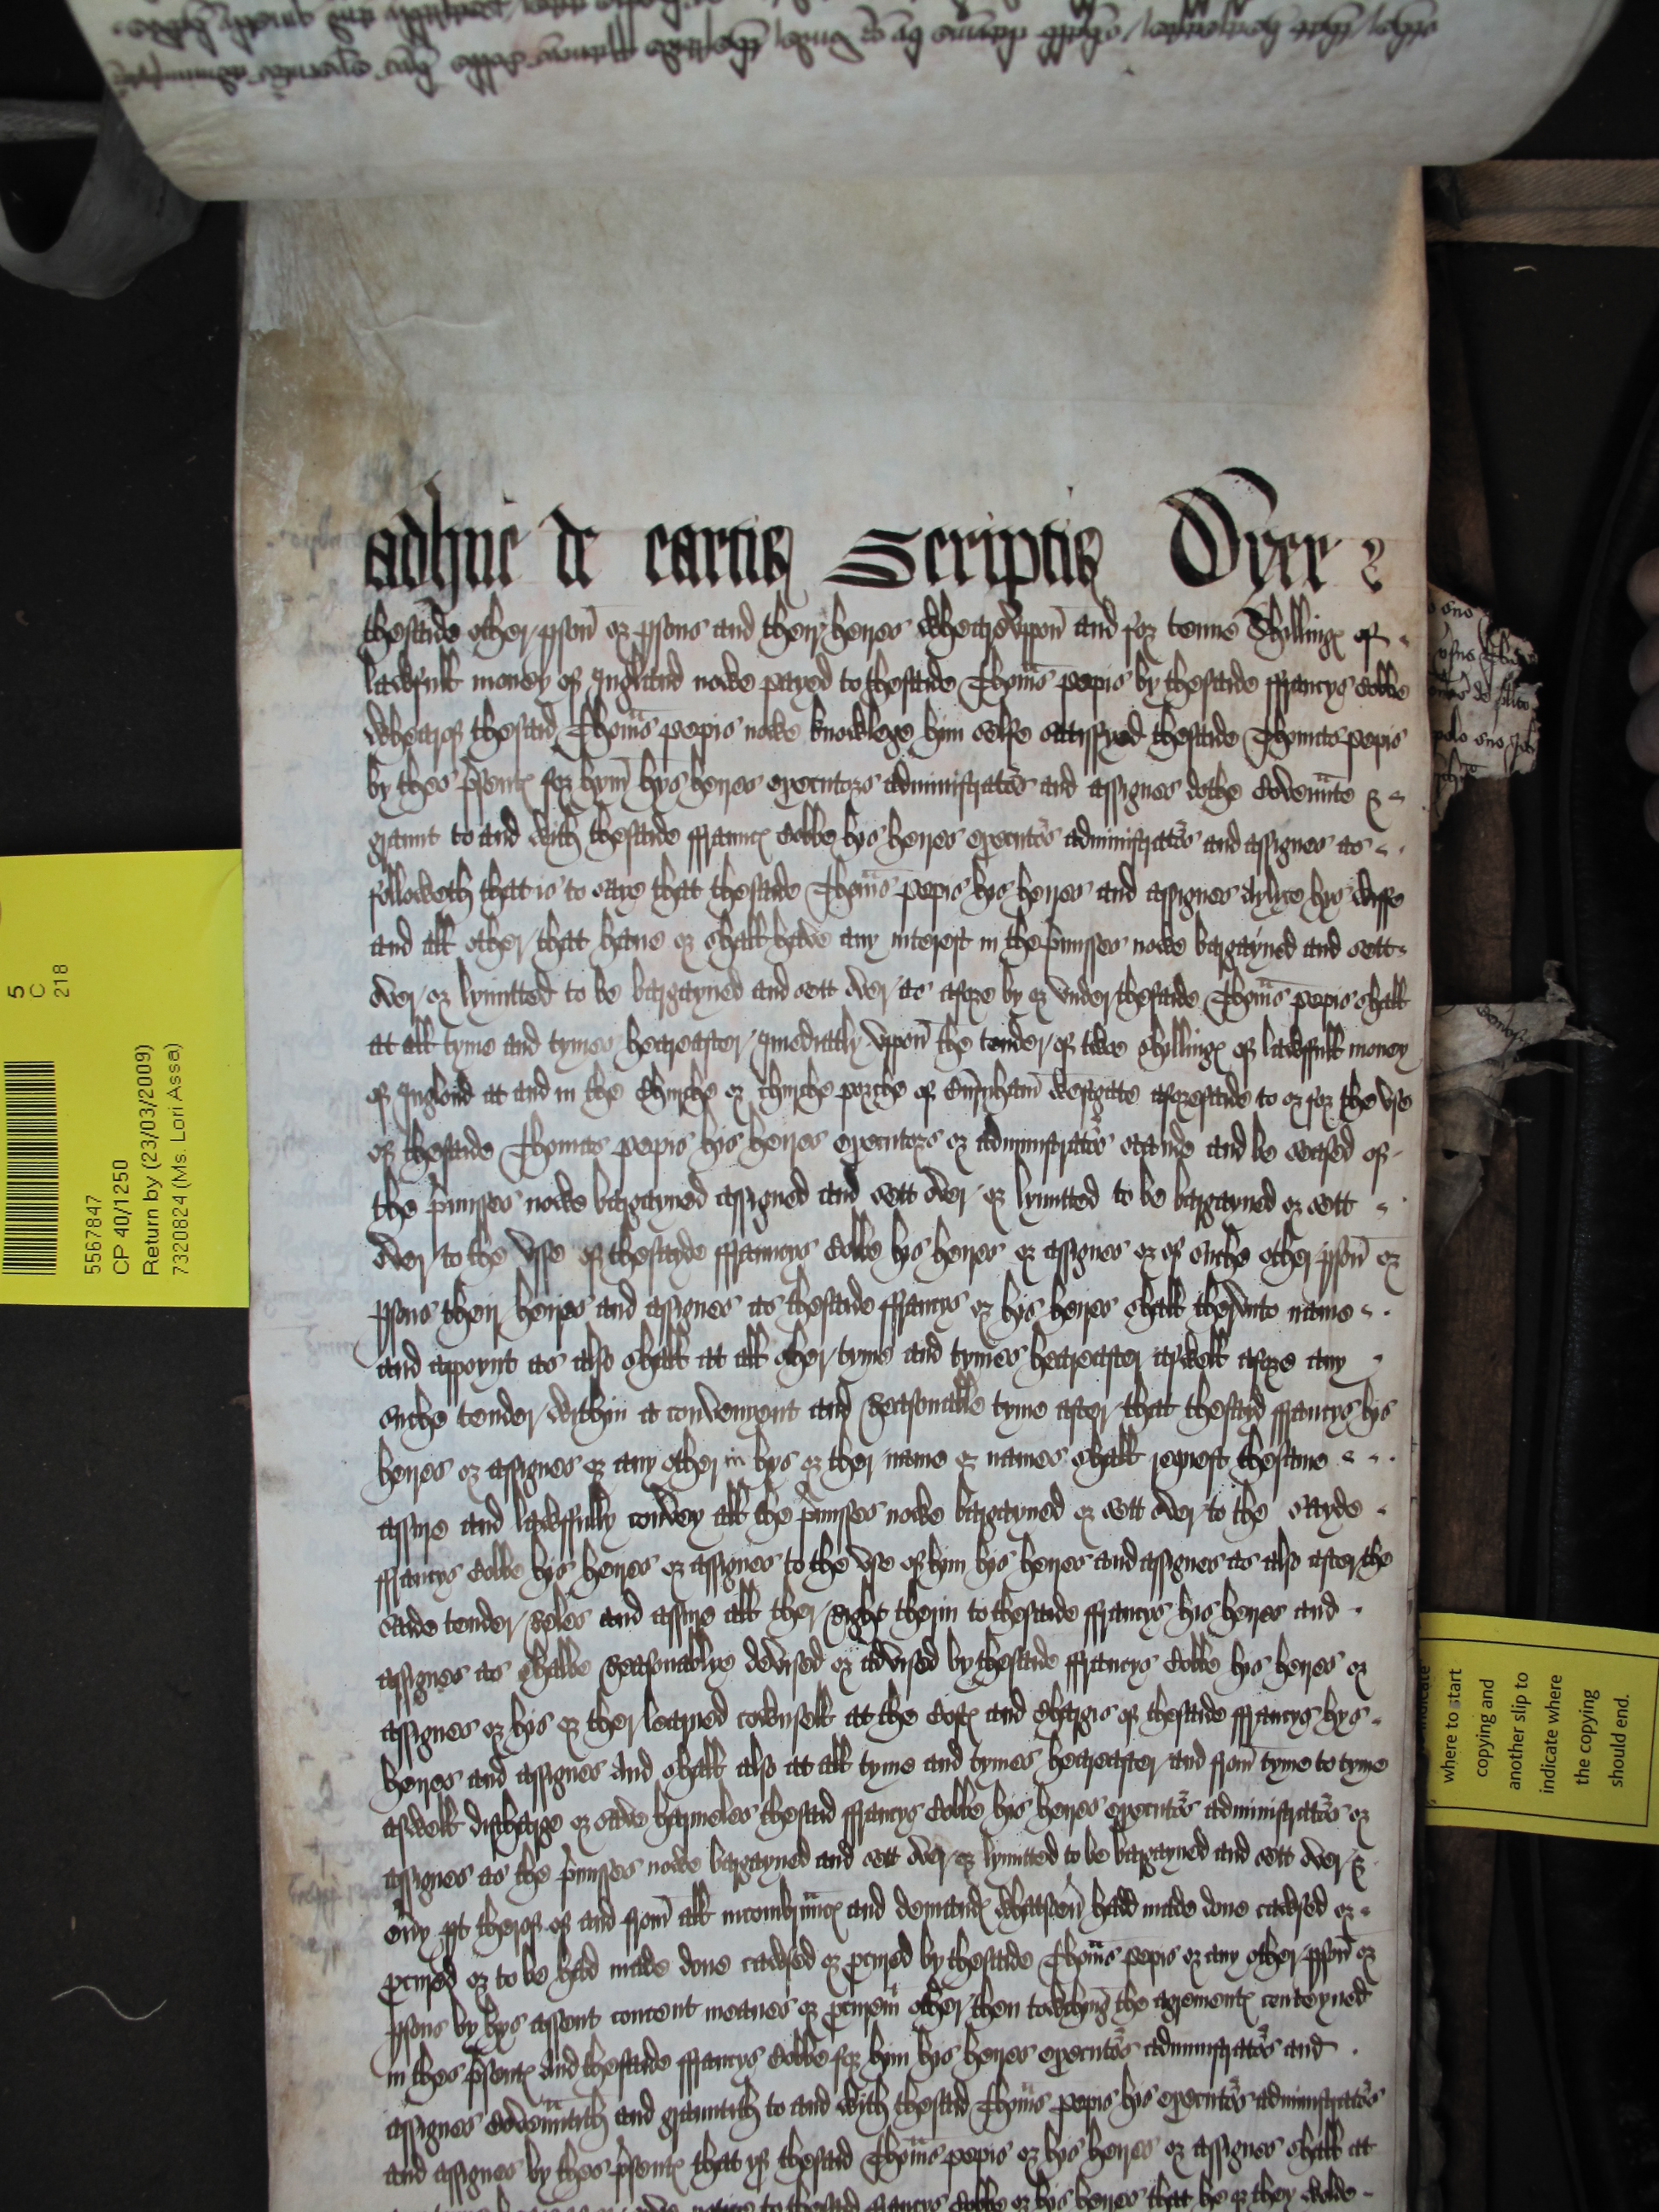 adhuc de cartis Scriptis Oyer
thesaide other pson or psons and their heires Wheareuppon and for tenne Shillings of
lawfull money of Ingland nowe payed to thesaide Thoms pepis by thesaide ffrancys Cobbe
Whearof thesaid Thoms pepis nowe knowlege him selfe satisfyed thesaide Thomas pepis
by thes psents for hym hys heires executors administrators and assignes dothe Covennte &
graunt to and with thesaide ffraunces Cobbe hys heires executors administrators and assignes as
followeth that is to saye that thesaide Thoms pepis hys heires and assignes Alyce hys wiffe
and all other that have or shall have any interest in the pmisses nowe bargayned and sett
over or lymitted to be bargayned and sett over as afore by or under thesaide Thoms pepis shall
at all tyme and tymes heareafter Imediatly uppon the tender of twoo shyllings of lawffull money
of Inglond at and in the Churche or churche porche of Burnham Westgate aforesaide to or for the use
of thesaide Thomas pepis his heires executors or administrators stande and be seased of
the pmisses nowe bargayned assigned and sett over or lymitted to be bargayned or sett
over to the usse of thesayde ffrancys Cobbe hys heires or assignes or of suche other pson or
psons their heires and assignes as thesaide ffrancys or hys heires shall therunto name
and appoynt as also shall at all other tyme and tymes heareafter aswell afore any
suche tender within a convenyent and Reasonable tyme after that thesayd ffrancys hys
heires or assignes or any other in hys or ther name or names shall request thesame
assure and lawffully convey all the pmisses nowe bargayned or sett over to the sayde
ffrancys Cobbe hys heires or assignes to the use of hym hys heires and assignes as also after the
saide tender Reles and assure all ther Right therin to thesaide ffrancys his heires and
assignes as shalbe Reasonablye devised or advised by thesaide ffrancys Cobbe hys heires or
assignes or hys or ther learned cownsell at the Costs and Chargis of thesaide ffrancys hys
heires and assignes And shall also at all tyme and tymes heareafter and from tyme to tyme
aswell discharge or save harmeles thesaid ffrancys Cobbe his heires executors administrators or
assignes as the pmisses nowe bargayned and sett over or lymitted to be bargayned and sett over &
evy pt therof of and from all incombrancs and demands whatsoev hadd made done cawsed or
pcured or to be had made done cawsed or pcured by thesaide Thoms pepis or any other pson or
psons by hys assent concent meanes or pcurem other then towching the agrements conteyned
in thes psents And thesaide ffrancys Cobbe for hym hys heires executors administrators and
assignes Covenntith and grauntith to and with thesaid Thoms pepis his executors administrators
and assignes by thes psents that yf thesaid Thoms pepis or hys heires or assignes shall at
5
C
218
5567847
CP 40/1250
Return by (23/03/2009)
73208224 (Ms. Lori Assa)
where to start
copying and
another slip to
indicate where
the copying
should end.